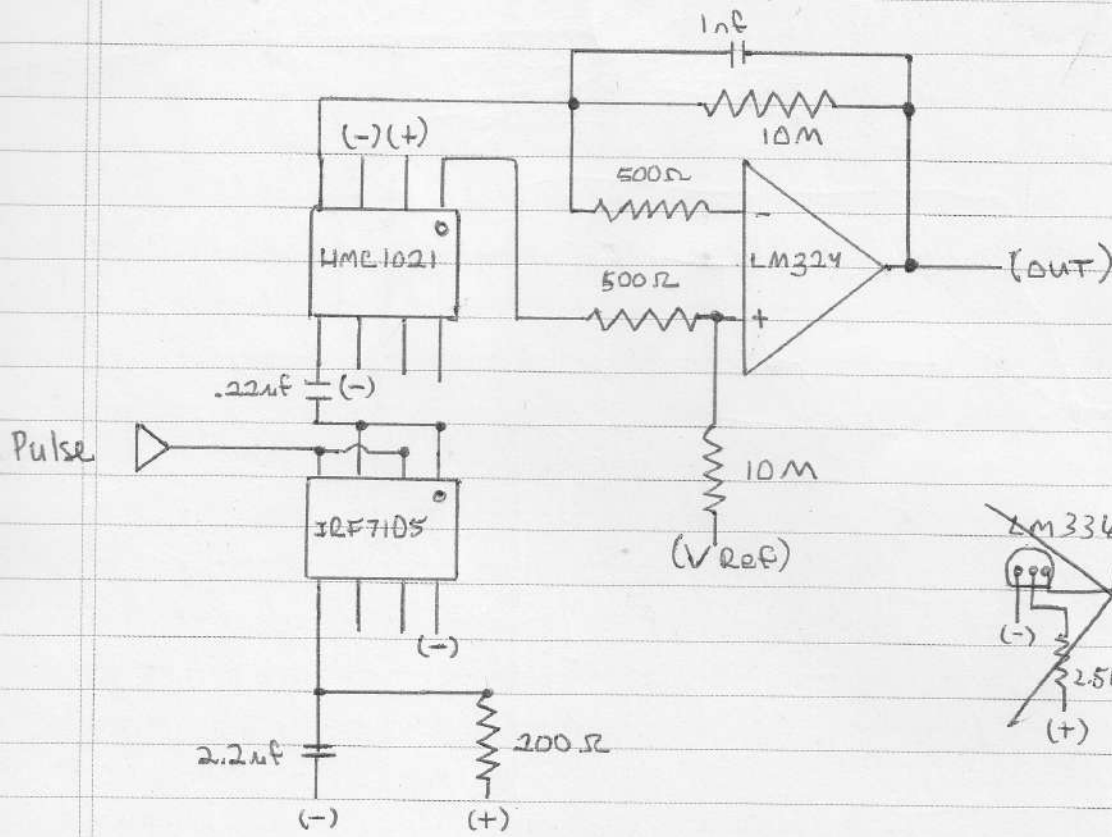 1nf
10M
(-) (+)
500Ω
HMC1021
- 
LM324
(OUT)
500Ω
+
.22uf
(-)
Pulse
10M
IRF7105
(VRef)
LM334
(-)
(-)
2.5
(+)
200Ω
2.2uf
(-)
(+)